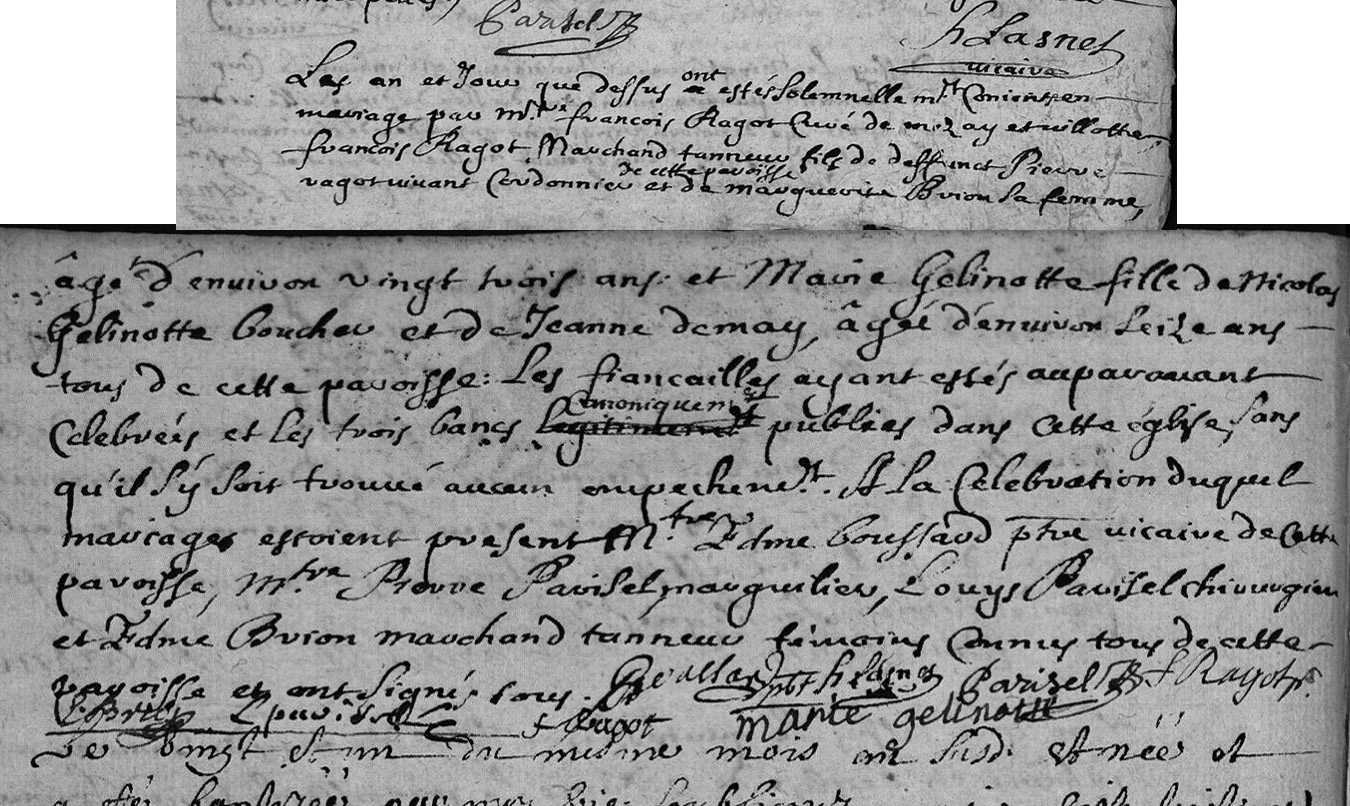 Parisel
h Lasnet
vicaire
Les an et Jour que dessus ont estés Solemnellem.t Conioints en
mariage par m.tre françois Ragot Curé de mizay et villotte,
françois Ragot Marchand tanneur fils de deffunct Pierre
de cette paroisse
ragot vivant Cordonnier et de marguerite Brion sa femme,
âgé d'environ vingt trois ans: et Marie Gelinotte fille de Nicolas
Gelinotte boucher et de Jeanne demay, âgée d'environ seize ans
tous de cette paroisse: Les fiancailles ayant estés auparavant
Canoniquem.t
Celebreés et les trois bancs legitimement publiés dans Cette église, sans
qu'il s'y soit trouvé aucun empechem.t. A La Celebration duquel
mariage estoient present M.tre Edme boussard ptre vicaire de Cette
paroisse, m.tre Pierre Parisel marguilier, Louys Parisel chirurgien
et Edme Brion marchand tanneur témoins Connus tous de cette
paroisse et ont signé tous.
h Lasnet Parisel f Ragot
L parisel f Ragot marie gelinotte
Le vingt et un du mesme mois an susd. est née et
a été baptisée par